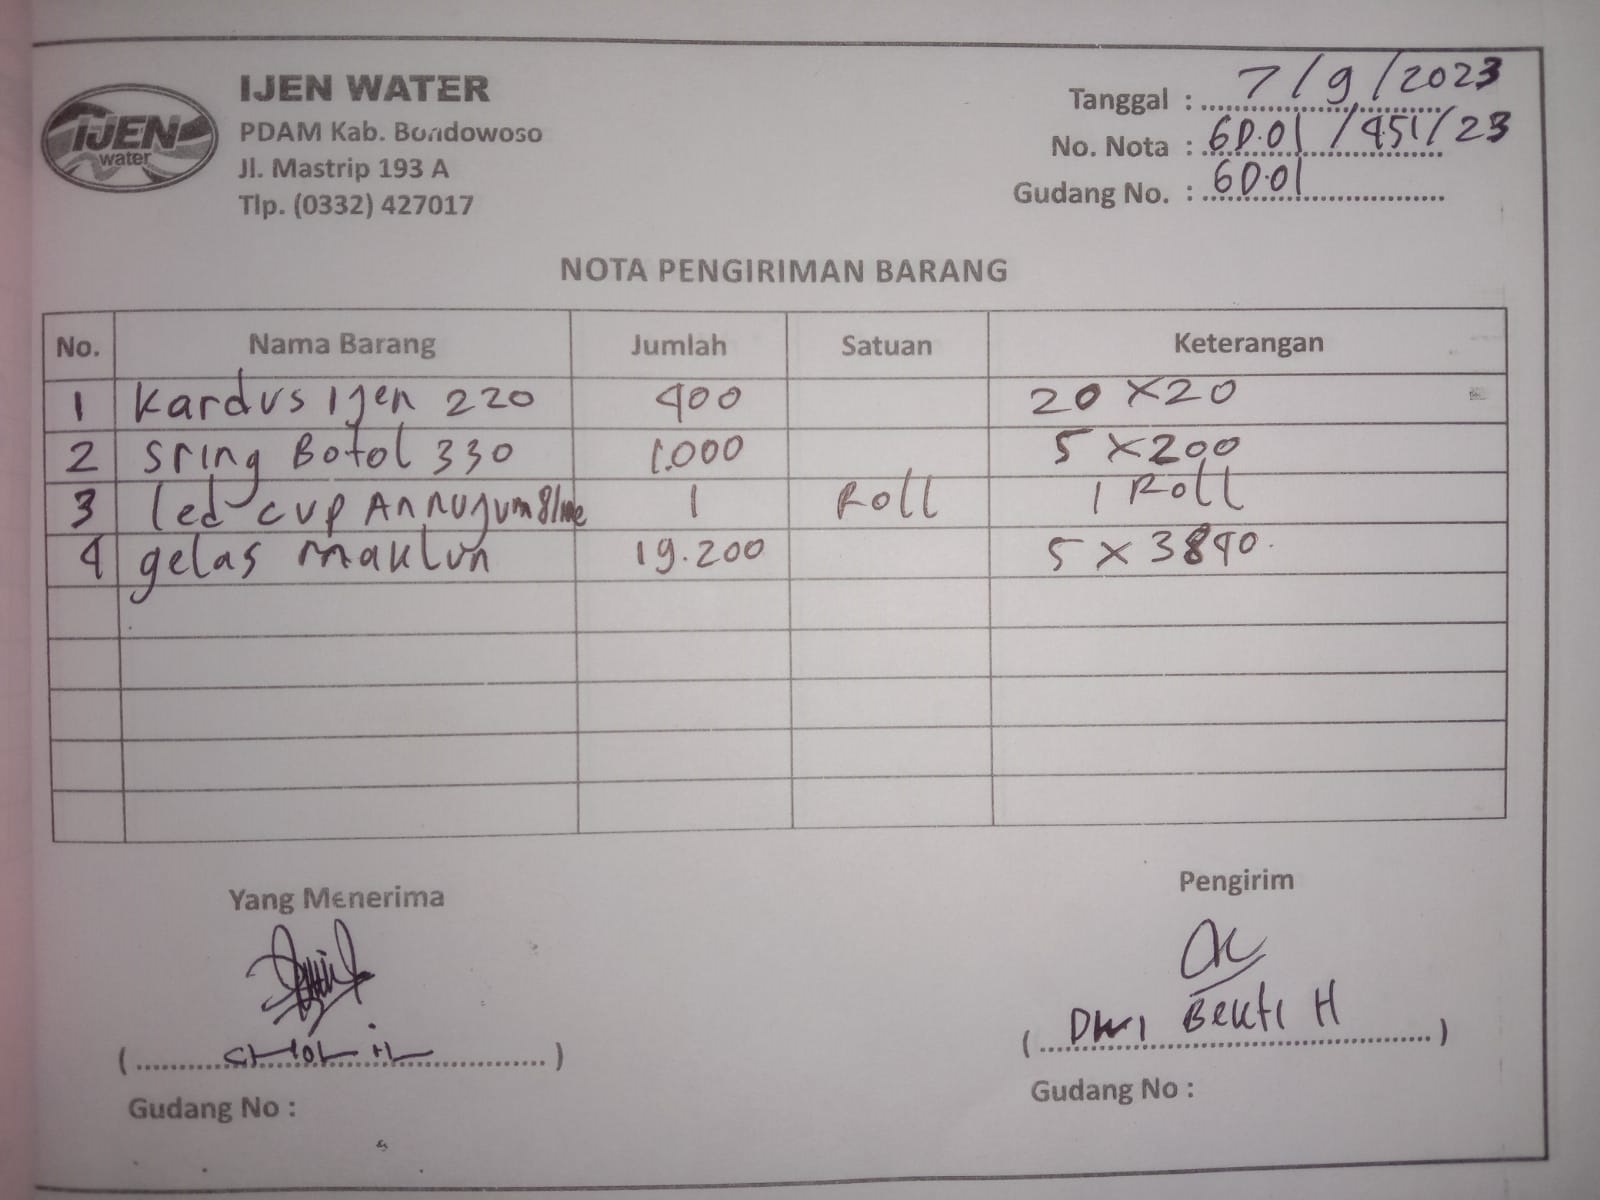 IJEN WATER
PDAM Kab. Bondowoso
Jl. Mastrip 193 A
Tlp. (0332) 427017
IJEN
water
Tanggal : 7/9/2023
No. Nota : 6D.01/451/23
Gudang No. : 6D.01
NOTA PENGIRIMAN BARANG
No. Nama Barang Jumlah Satuan Keterangan
1 Kardus Ijen 220 400 20 X 20
2 Sring Botol 330 1.000 5 X 200
3 led cup Annujum 1 Roll 1 Roll
4 gelas Maklun 19.200 5 X 3840
Yang Menerima
Pengirim
Dwi Bekti H
Gudang No :
Gudang No :